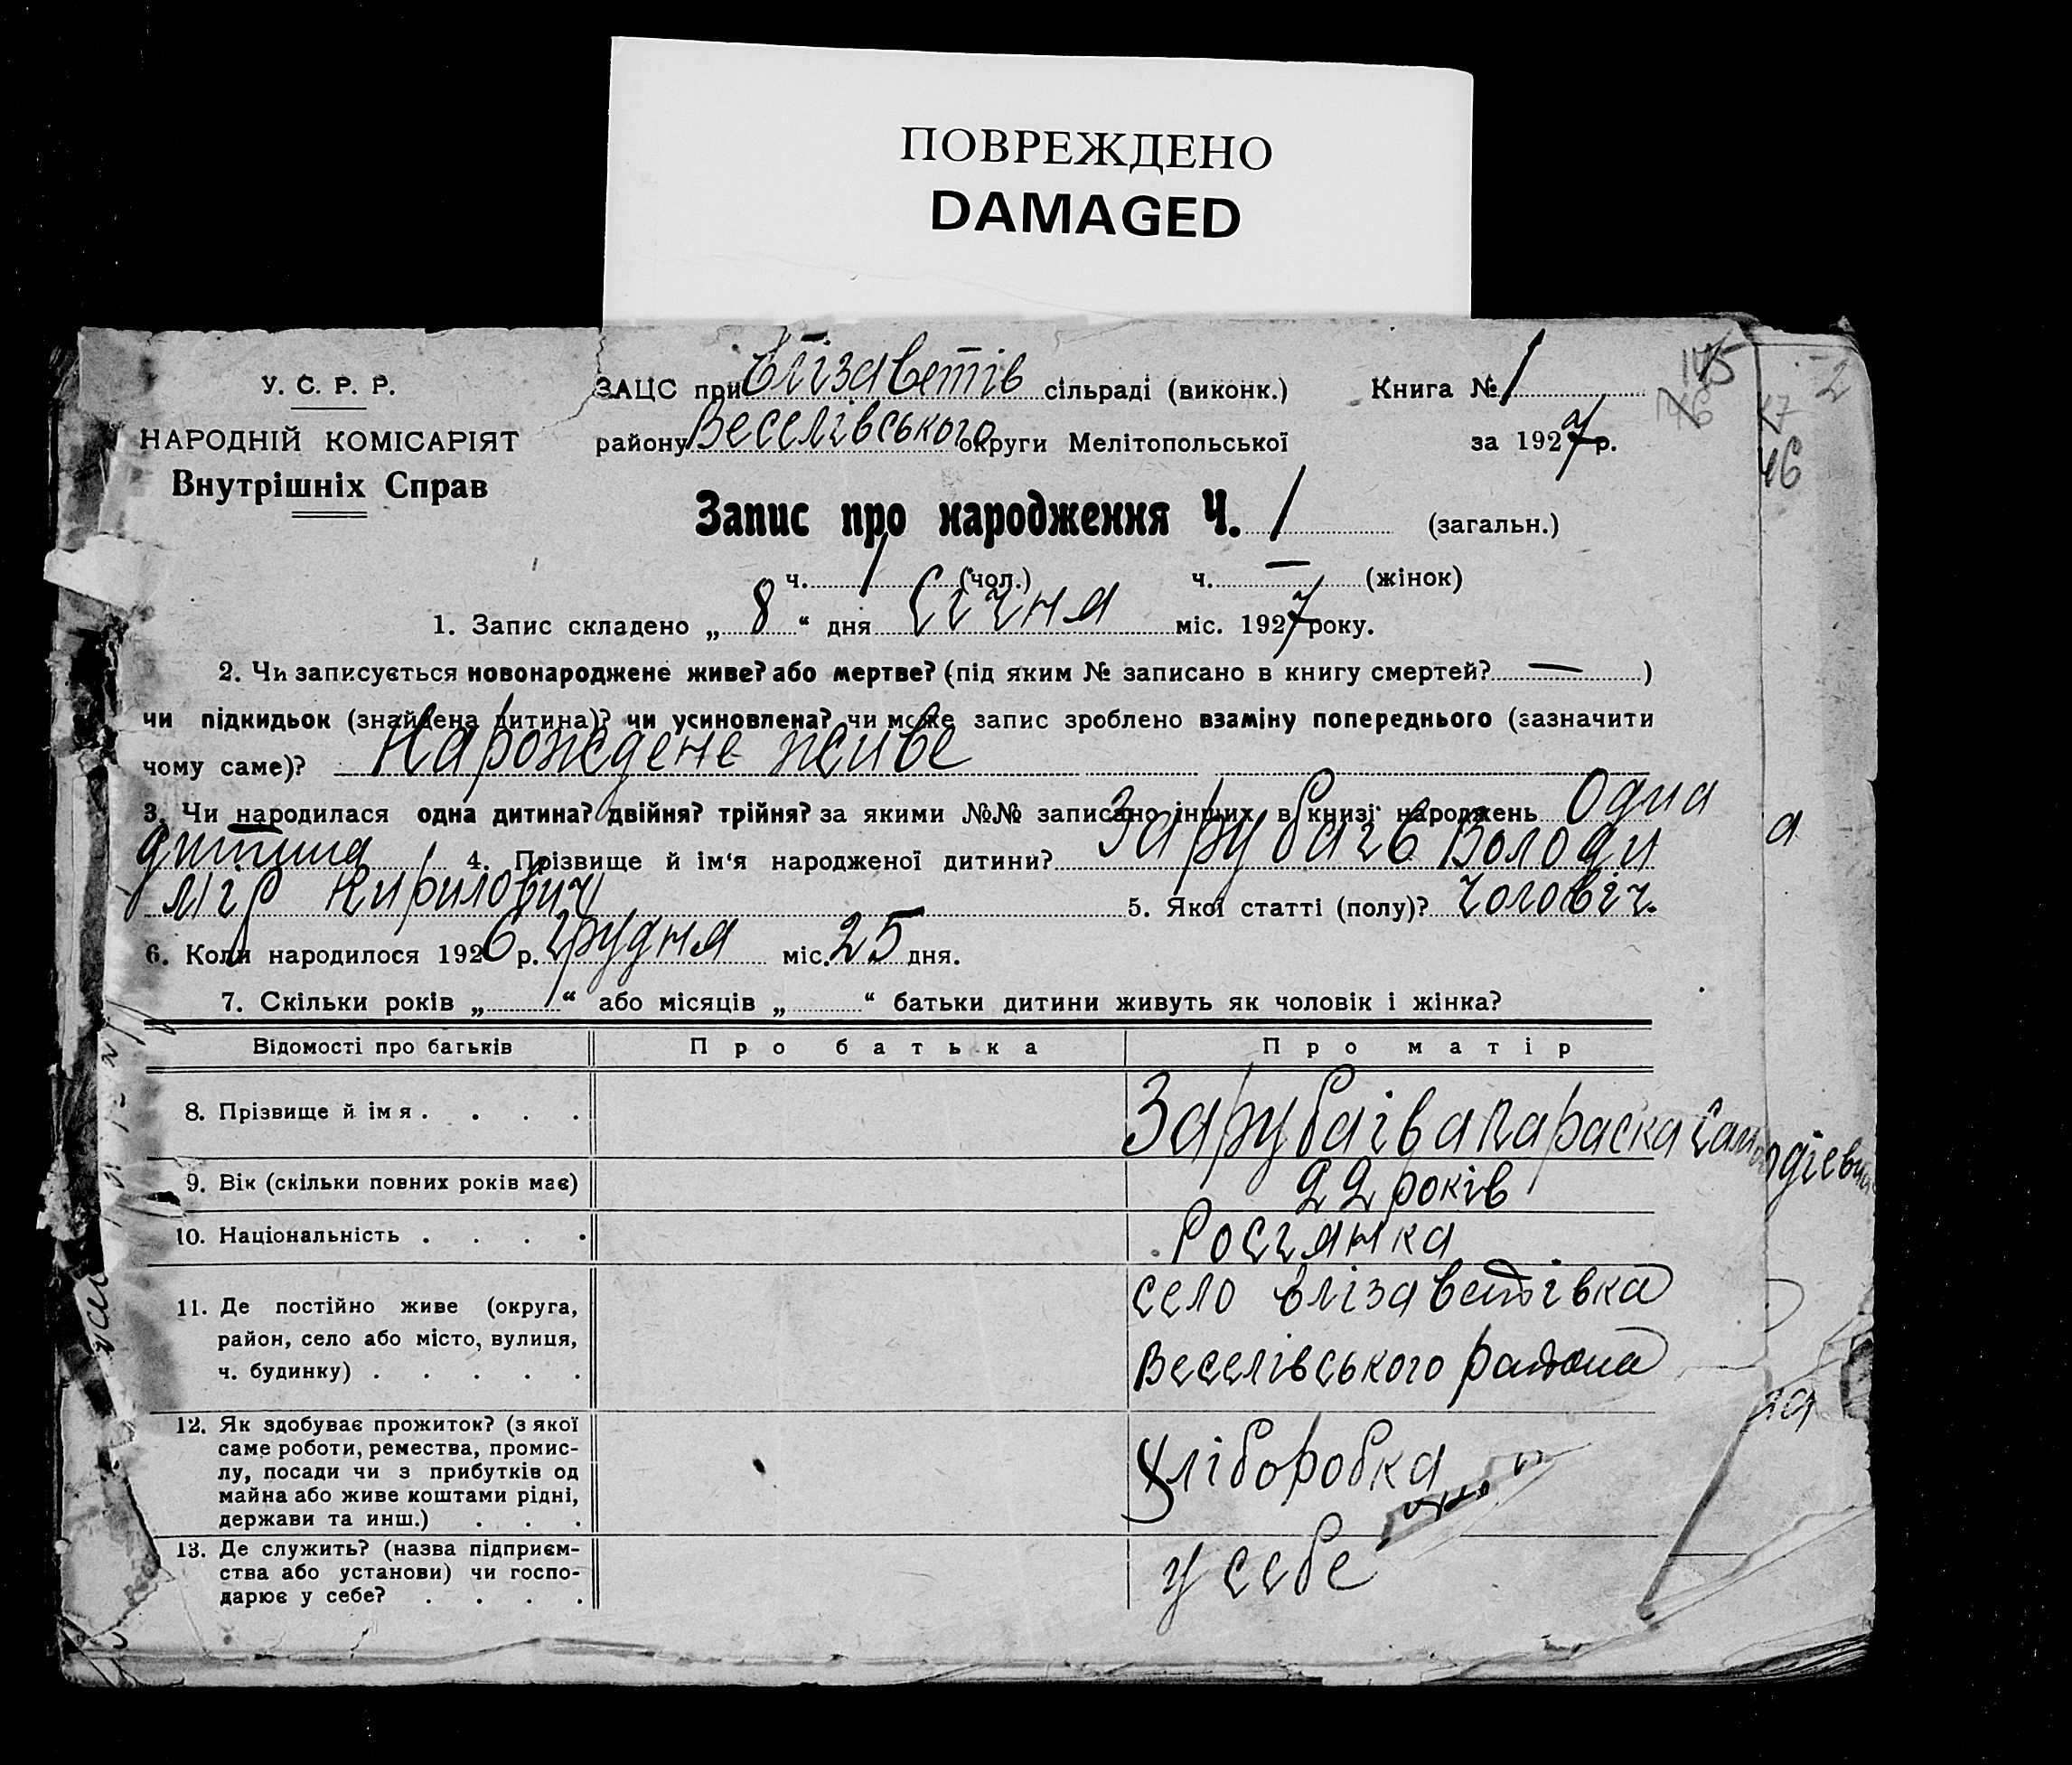 ПОВРЕЖДЕНО
DAMAGED
У. С. Р. Р.
НАРОДНІЙ КОМІСАРІЯТ
Внутрішніх Справ
ЗАЦС при Єлізаветів сільраді (виконк.) Книга № 1
району Веселівського округи Мелітопольської за 1927 р.
145
46
17
46
2
Запис про народження Ч. 1 (загальн.)
ч. 1 (чол.) ч. — (жінок)
1. Запис складено „ 8 “ дня Січня міс. 1927 року.
2. Чи записується новонароджене живе? або мертве? (під яким № записано в книгу смертей? — )
чи підкидьок (знайдена дитина)? чи усиновлена? чи може запис зроблено взаміну попереднього (зазначити
чому саме)? Нарождене живе
3. Чи народилася одна дитина? двійня? трійня? за якими №№ записано інших в книзі народжень Одна
дитина 4. Прізвище й ім‘я народженої дитини? Зарубаів Володи
мір Кирилович 5. Якої статті (полу)? чоловіч.
6. Коли народилося 1926 р. грудня міс. 25 дня.
7. Скільки років „ “ або місяців „ “ батьки дитини живуть як чоловік і жінка?
Відомості про батьків Про батька Про матір
8. Прізвище й імя . . . . Зарубаіва Параска
9. Вік (скільки повних років має) 22 років
10. Національність . . . . Росіянка
11. Де постійно живе (округа, село Єлізаветівка
район, село або місто, вулиця,
ч. будинку) . . . . . Веселівського района
12. Як здобуває прожиток? (з якої
саме роботи, ремества, промис-
лу, посади чи з прибутків од Хліборобка
майна або живе коштами рідні,
держави та инш.) . . .
13. Де служить? (назва підприєм-
ства або установи) чи госпо- у себе
дарює у себе? . . . .